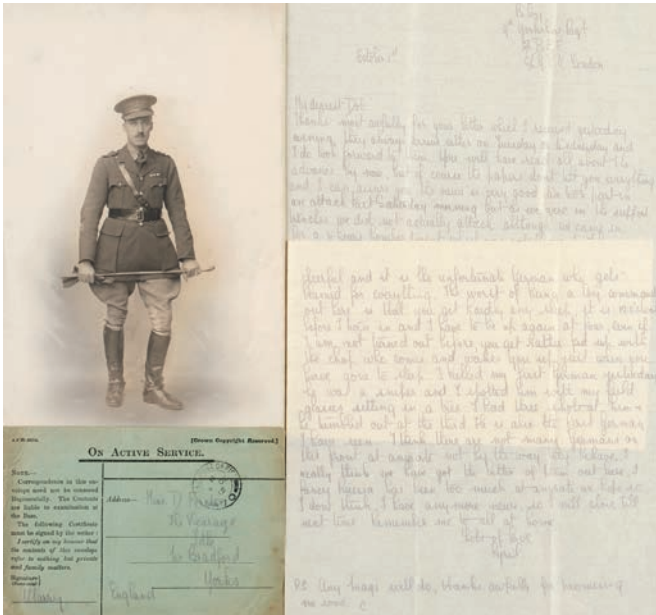 October 1st
London
My dearest
Thanks most awfully for your letter which I received yesterday
evening, they always arrive either on Tuesday or Wednesday and
I do look forward to them. You will have read all about the
advance by now, but of course the papers don't tell you everything
and I can assure you the news is very good. We took part in
an attack last Saturday morning but as we were in the support
trenches we did not actually attack although we
cheerful and it is the unfortunate German who gets
blamed for everything. The worst of being a Coy command
out here is that you get hardly any sleep, it is midnight
before I turn in and I have to be up again at four, even if
I am not turned out before you get rather fed up with
the chap who comes and wakes you up just when you
have gone to sleep. I killed my first German yesterday
he was a sniper and I spotted him with my field
glasses sitting in a tree I had three shots at him &
he tumbled out at the third. He is also the first German
I have seen. I think there are not many Germans on
this front at anyrate not by the way they behave, I
really think we have got the better of them out here, I
fancy Russia has been too much at anyrate we hope so.
I don't think I have anymore news, so I will close till
next time. Remember me to all at home
Lots of love
PS. Any mags will do, thanks awfully for
me some
[Crown Copyright Reserved.]
ON ACTIVE SERVICE.
NOTE:—
Correspondence in this envelope need not be censored
Regimentally. The Contents
are liable to examination at
the Base.
The following Certificate
must be signed by the writer:
I certify on my honour that
the contents of this envelope
refer to nothing but private
and family matters.
Signature
Address
Miss D
The Vicarage
Nr Bradford
Yorks
England